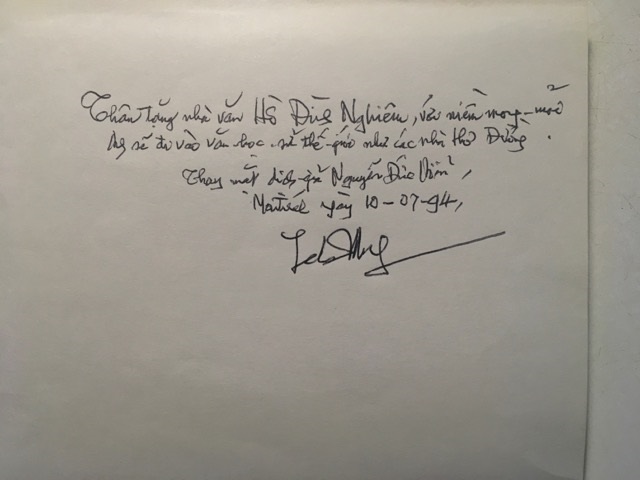 Thân tặng nhà văn Hồ Đình Nghiêm, với niềm mong-mỏi
sẽ đi vào văn học sử thế-giới như các nhà thơ Đường.
Thay mặt dịch-giả Nguyễn Đức Hiển,
Montréal ngày 10-07-94,